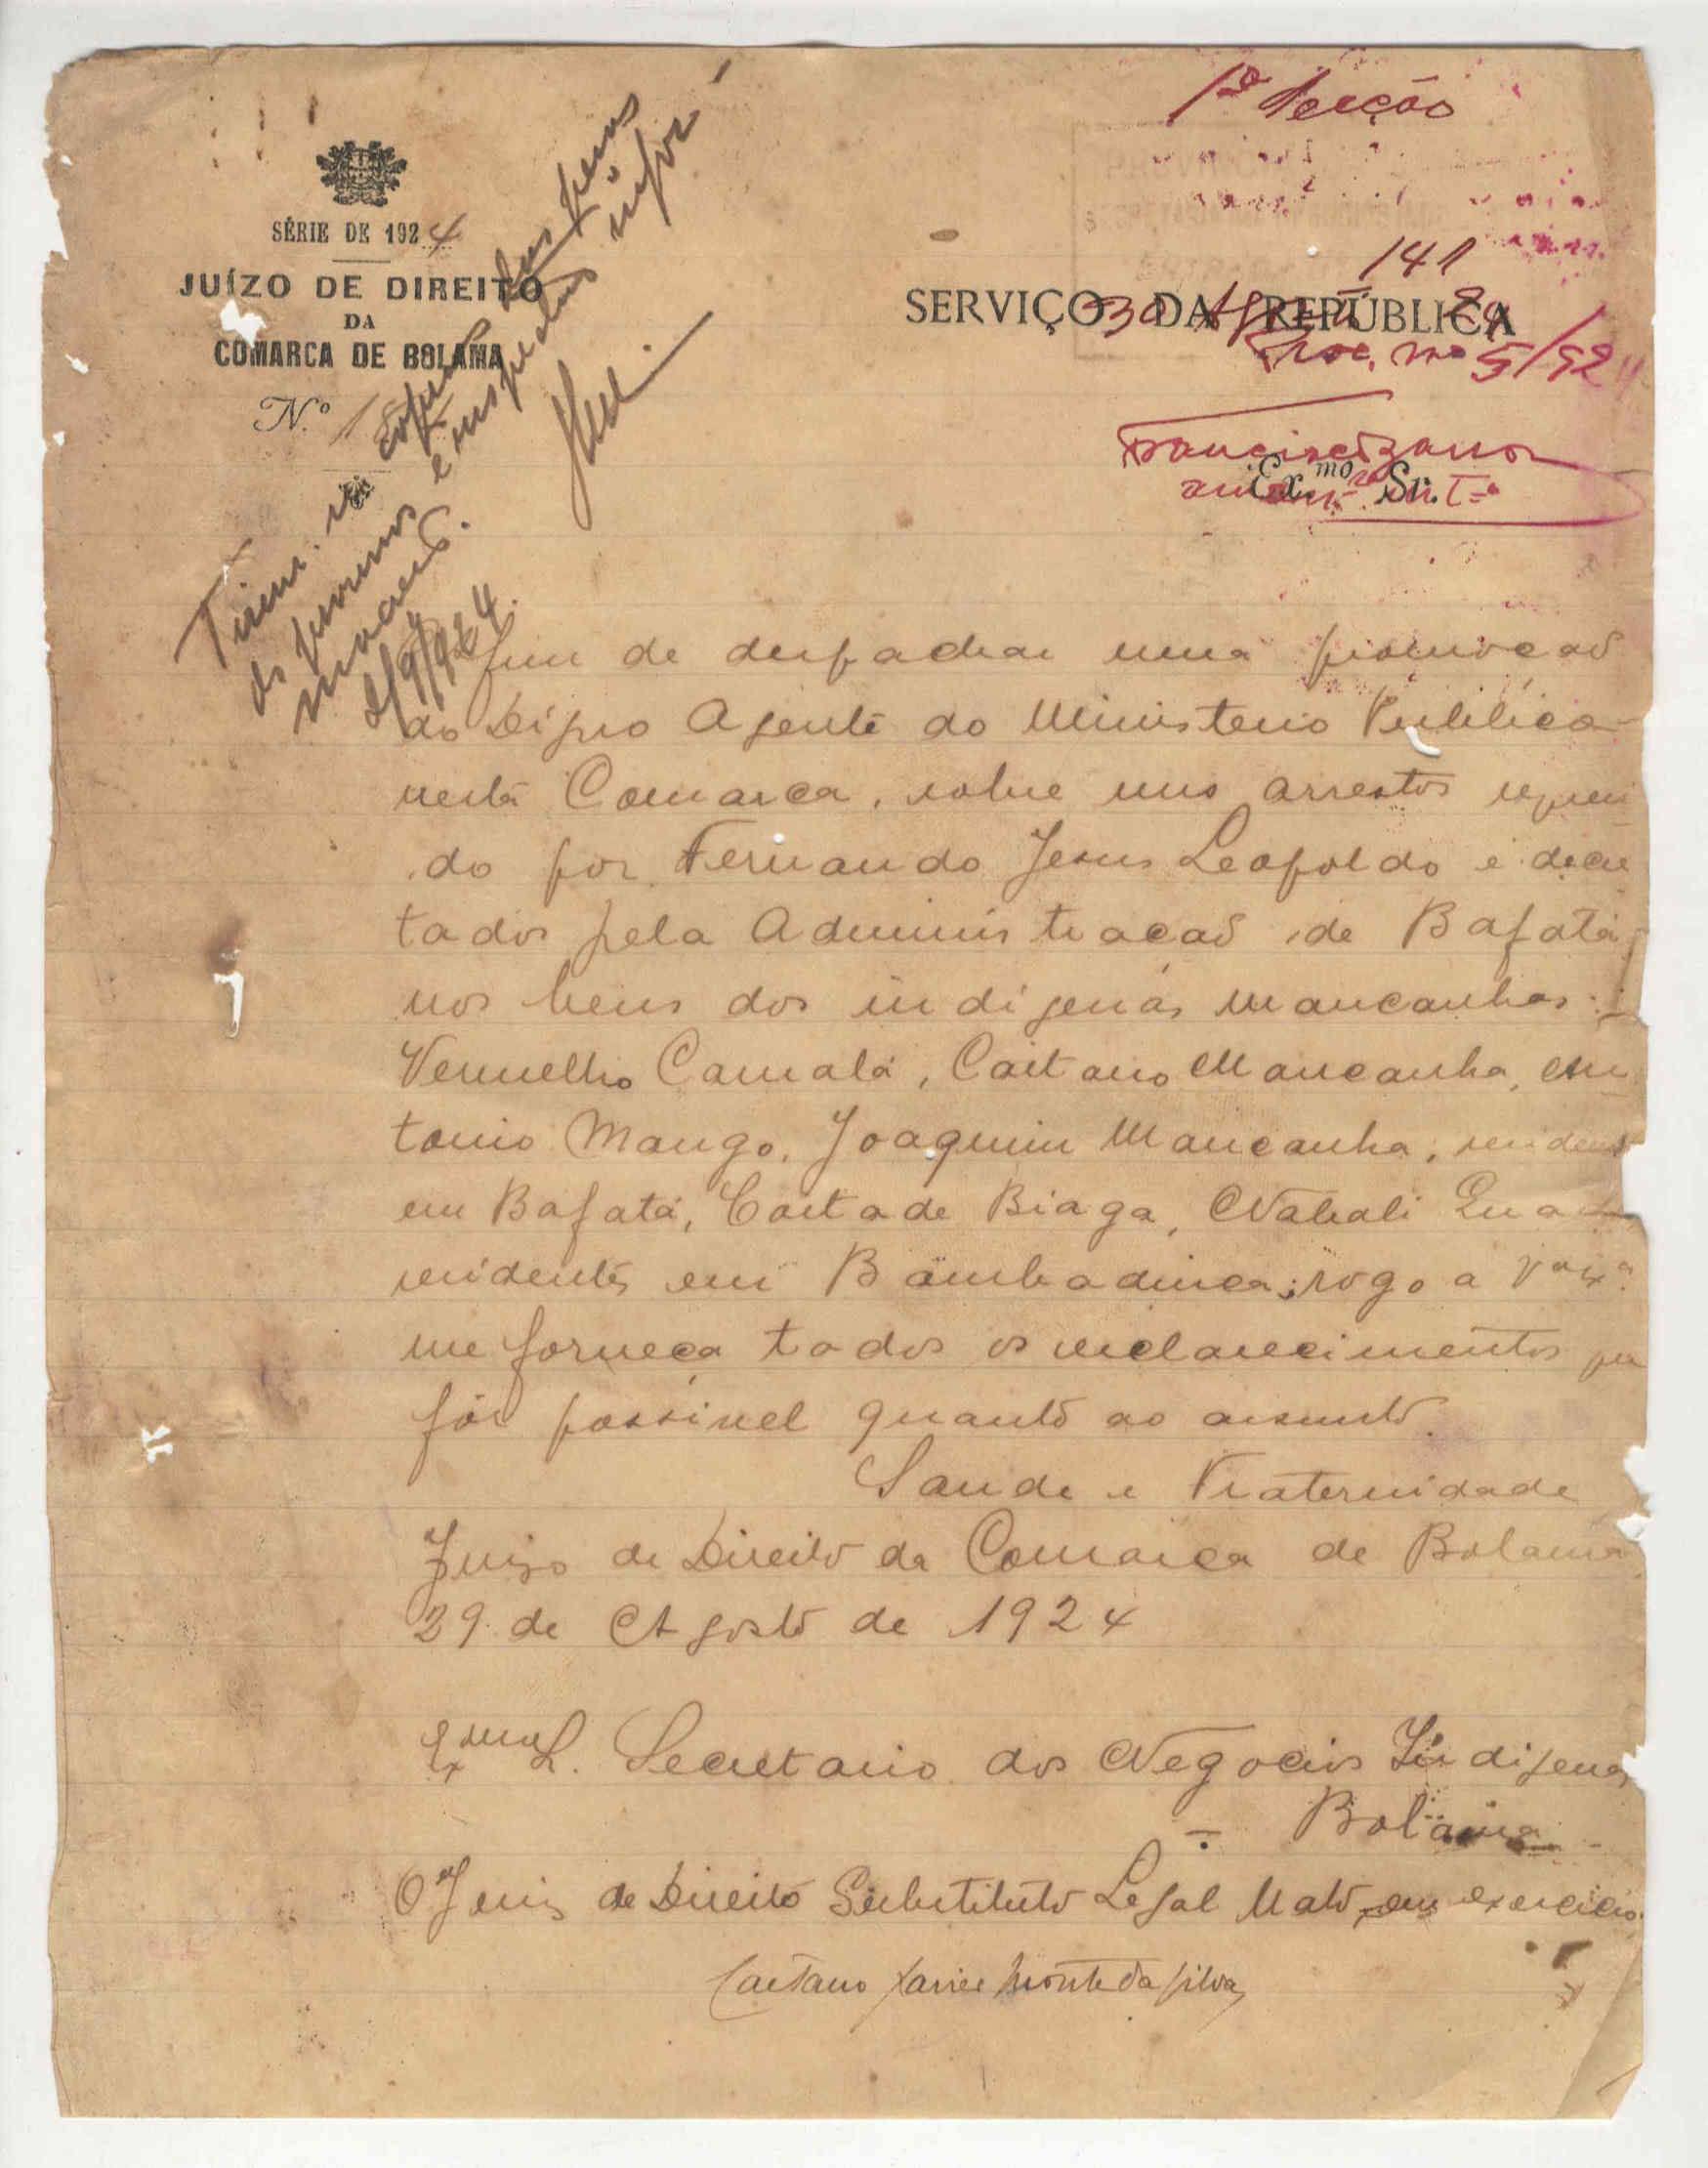 1ª Secção
SÉRIE DE 1924
JUÍZO DE DIREITO
DA
COMARCA DE BOLAMA
N.º
141
SERVIÇO DA REPÚBLICA
30 Agosto 24
Proc. nº 5/924
Ex.mo Sr.
2/9/924.
Afim de despachar uma promoçaõ
do Digno Agente do Ministerio Publico
nesta Comarca, sobre uns arrestos requeri
do por Fernando Jesus Leopoldo e decre
tados pela Administraçaõ de Bafatá
nos bens dos indigenas mancanhas:
Vermelho Camalá, Caitano Mancanha, An
tonio Mango, Joaquim Mancanha, resident
em Bafatá, Caitade Biaga, Nabali
residentes em Bambadinca; rogo a V. Exª
me forneça todos os esclarecimentos que
fôr possivel quanto ao assunto.
Saude e Fraternidade
Juizo de Direito da Comarca de Bolama
29 de Agosto de 1924
Exmo S. Secretario dos Negocios Indigenas
Bolama
O Juiz de Direito Substituto Legal Nato, em exercicio.
Caetano Xavier Monte da Silva